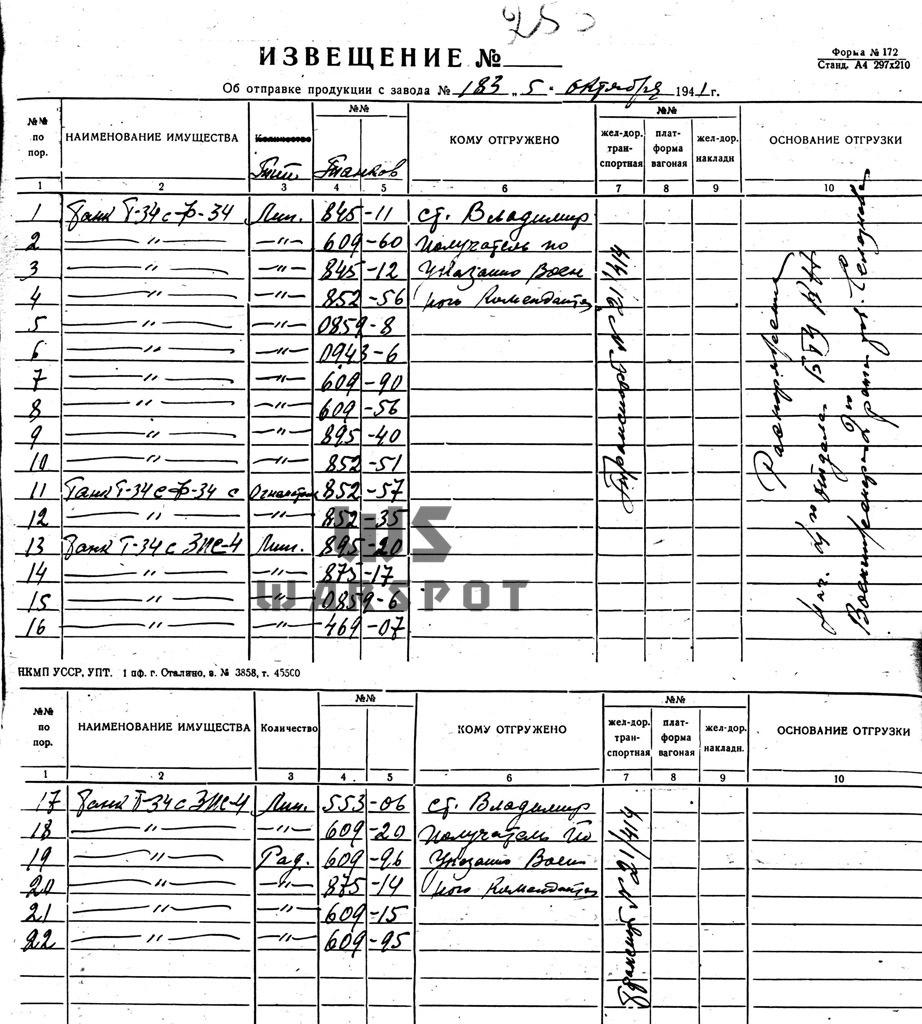 ИЗВЕЩЕНИЕ №
Форма № 172
Станд. А4 297х210
Об отправке продукции с завода № 183 „5" октября 1941 г.
№№ по пор. НАИМЕНОВАНИЕ ИМУЩЕСТВА Количество Тип №№ Танков КОМУ ОТГРУЖЕНО №№ жел-дор. тран-спортная плат-форма вагоная жел-дор. накладн ОСНОВАНИЕ ОТГРУЗКИ
1 2 3 4 5 6 7 8 9 10
1 Танк Т-34 с Ф-34 Лин. 845-11 ст. Владимир
2 —"— —"— 609-60 Получатель по
3 —"— —"— 845-12 Указанию Воен
4 —"— —"— 852-56 ного Коменданта
5 —"— —"— 0859-8
6 —"— —"— 0943-6
7 —"— —"— 609-90
8 —"— —"— 609-56
9 —"— —"— 895-40
10 —"— —"— 852-51
11 Танк Т-34 с Ф-34 с 852-57
12 —"— —"— 852-35
13 Танк Т-34 с ЗИС-4 Лин. 895-20
14 —"— —"— 875-17
15 —"— —"— 0859-6
16 —"— —"— 469-07
Транспорт № 21/414
Распоряжение
Нач. отдела БТУ
Военинженера ранга тов.
WS
WARSPOT
НКМП УССР, УПТ. 1 пф. г. Сталино, з. № 3858, т. 45500
№№ по пор. НАИМЕНОВАНИЕ ИМУЩЕСТВА Количество №№ КОМУ ОТГРУЖЕНО №№ жел-дор. тран-спортная плат-форма вагоная жел-дор. накладн. ОСНОВАНИЕ ОТГРУЗКИ
1 2 3 4 5 6 7 8 9 10
17 Танк Т-34 с ЗИС-4 Лин. 553-06 ст. Владимир
18 —"— —"— 609-20 Получатель По
19 —"— Рад. 609-96 Указанию Воен
20 —"— —"— 875-14 ного Коменданта
21 —"— —"— 609-15
22 —"— —"— 609-95
Транспорт № 21/414